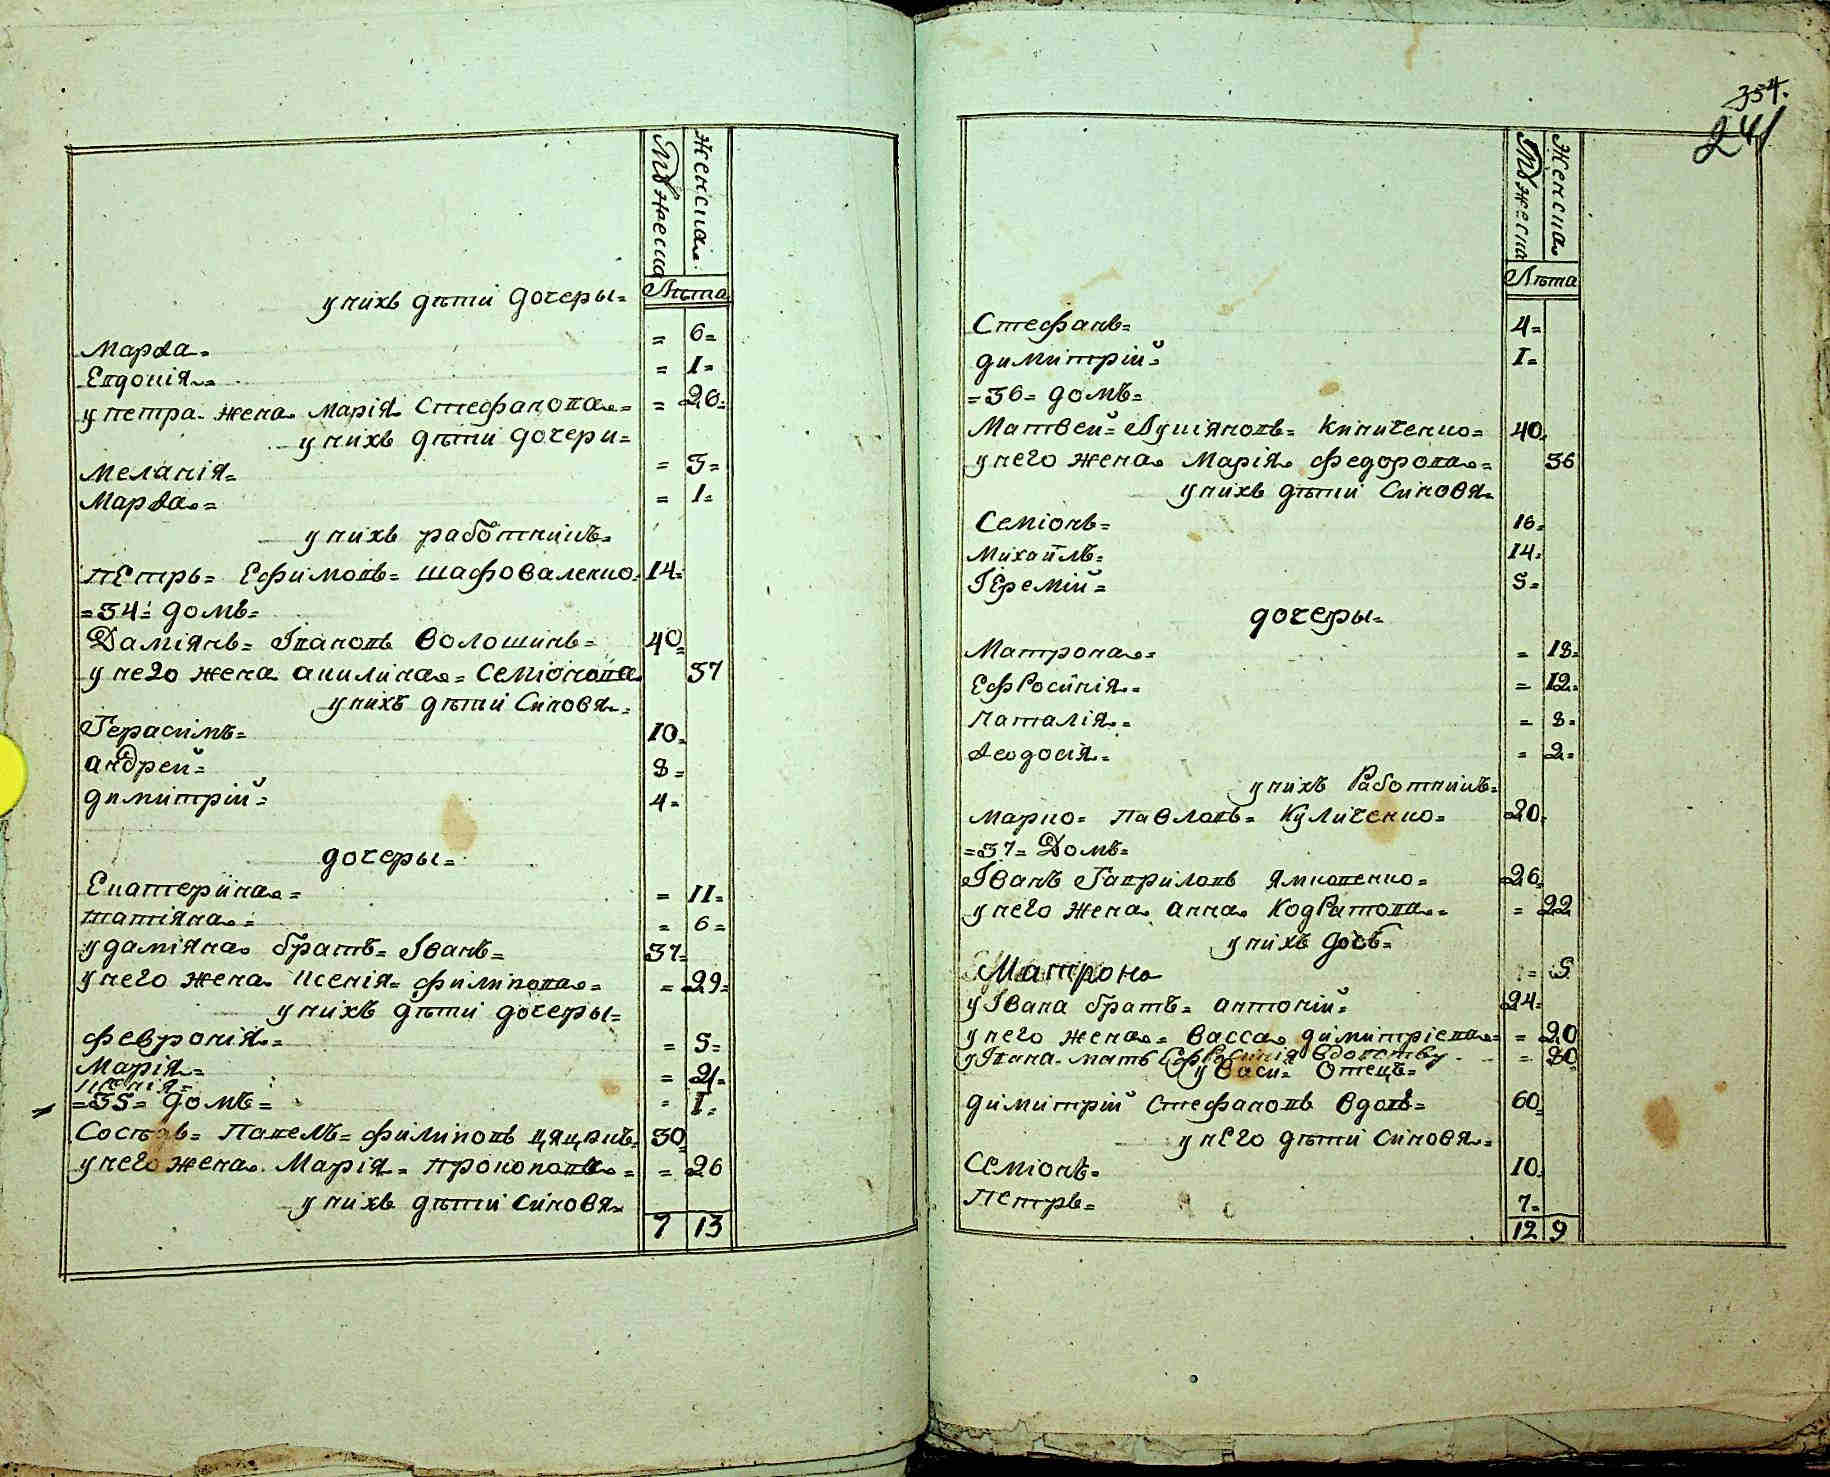 Мꙋжеска
Женская
Лѣта
у нихъ дѣти дочеры=
Марѳа= = 6=
Евдокія= = 1=
у петра жена Марія Стефанова= = 26=
у нихъ дѣти дочери=
Меланія= = 3=
Марѳа= = 1=
у нихъ работникъ=
пЕтръ= Ефимовъ= шаповаленко= 14=
=34= домъ=
Даміянъ= Івановъ Волошинъ= 40=
у него жена акилина= Семіонова 37
у нихъ дѣти Синовя=
Герасимъ= 10=
андрей= 8=
димитрій= 4=
дочеры=
Екатерина= = 11=
татіяна= = 6=
у даміяна братъ= Іванъ= 37=
у него жена Ксенія= филипова= = 29=
у нихъ дѣти дочеры=
февронія= = 5=
Марія= = 2=
Ксенія= = 1=
=35= домъ=
Павелъ= филиповъ 30
у него жена Марія= прокопова= = 26
у нихъ дѣти синовя=
7 13
354.
241
Мꙋжеска
Женска
Лѣта
Стефанъ= 4=
димитрій= 1=
=36= домъ=
Матвей= Лукіяновъ= Кириченко= 40=
у него жена Марія федорова= 36
у нихъ дѣти Синовя=
Семіонъ= 16=
Михаилъ= 14=
ІЕремій= 5=
дочеры=
Матрона= = 18=
Ефросинія= = 12=
Наталія= = 8=
Ѳеодосія= = 2=
у нихъ Работникъ=
марко= павловъ= Куличенко= 20=
=37= Домъ=
Іванъ Гавриловъ 26=
у него жена анна Кодратова= = 22
у нихъ дочъ=
Матрона = 5
у Івана братъ= антоній= 24=
у него жена= Васса димитріева= = 20
у Івана мать Ефросинія = 80
у Васи= Отецъ=
димитрій Стефановъ Вдовъ= 60=
у нЕго дѣти синовя=
Семіонъ= 10=
Петръ= 7=
12 9